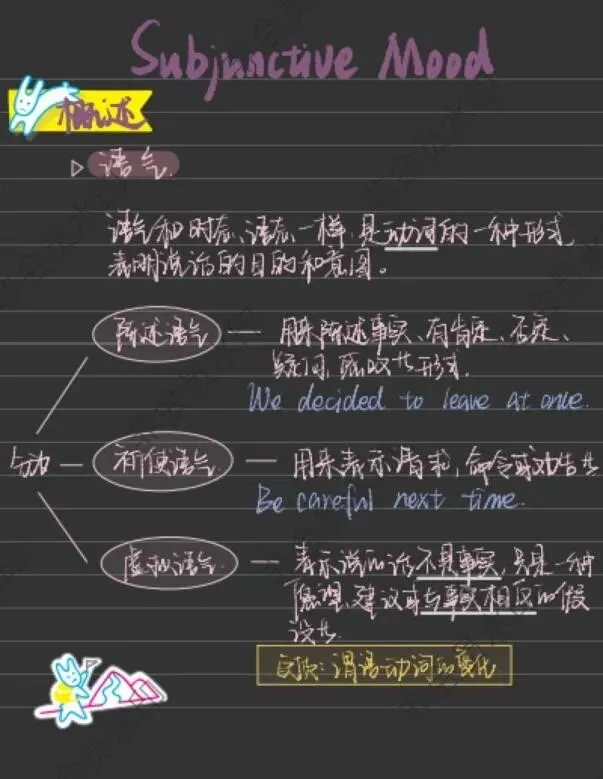 Subjunctive Mood
概述
语气
语气和时态、语态一样,是动词的一种形式,
表明说话的目的和意图。
陈述语气 — 用来陈述事实、有肯定、否定、
疑问,感叹共形式.
We decided to leave at once.
分为 — 祈使语气 — 用来表示请求,命令或劝告共
Be careful next time.
虚拟语气 — 表示说的话不是事实,只是一种
愿望,建议或与事实相反的假
设共.
实质:谓语动词的变化